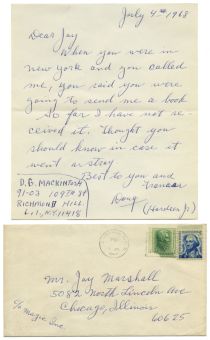 July 4th 1968
Dear Jay
When you were in
new york and you called
me, you said you were
going to send me a book
so far I have not re-
ceived it. Thought you
should know in case it
went a stray
Best to you and
Frances
Doug
D. G. MACKINTOSH
91-03 109TH ST
RICHMOND HILL
L.I., N.Y. 11418
Mr. Jay Marshall
5082 North Lincoln Ave
Chicago, Illinois
60625
c/o Magic Inc.